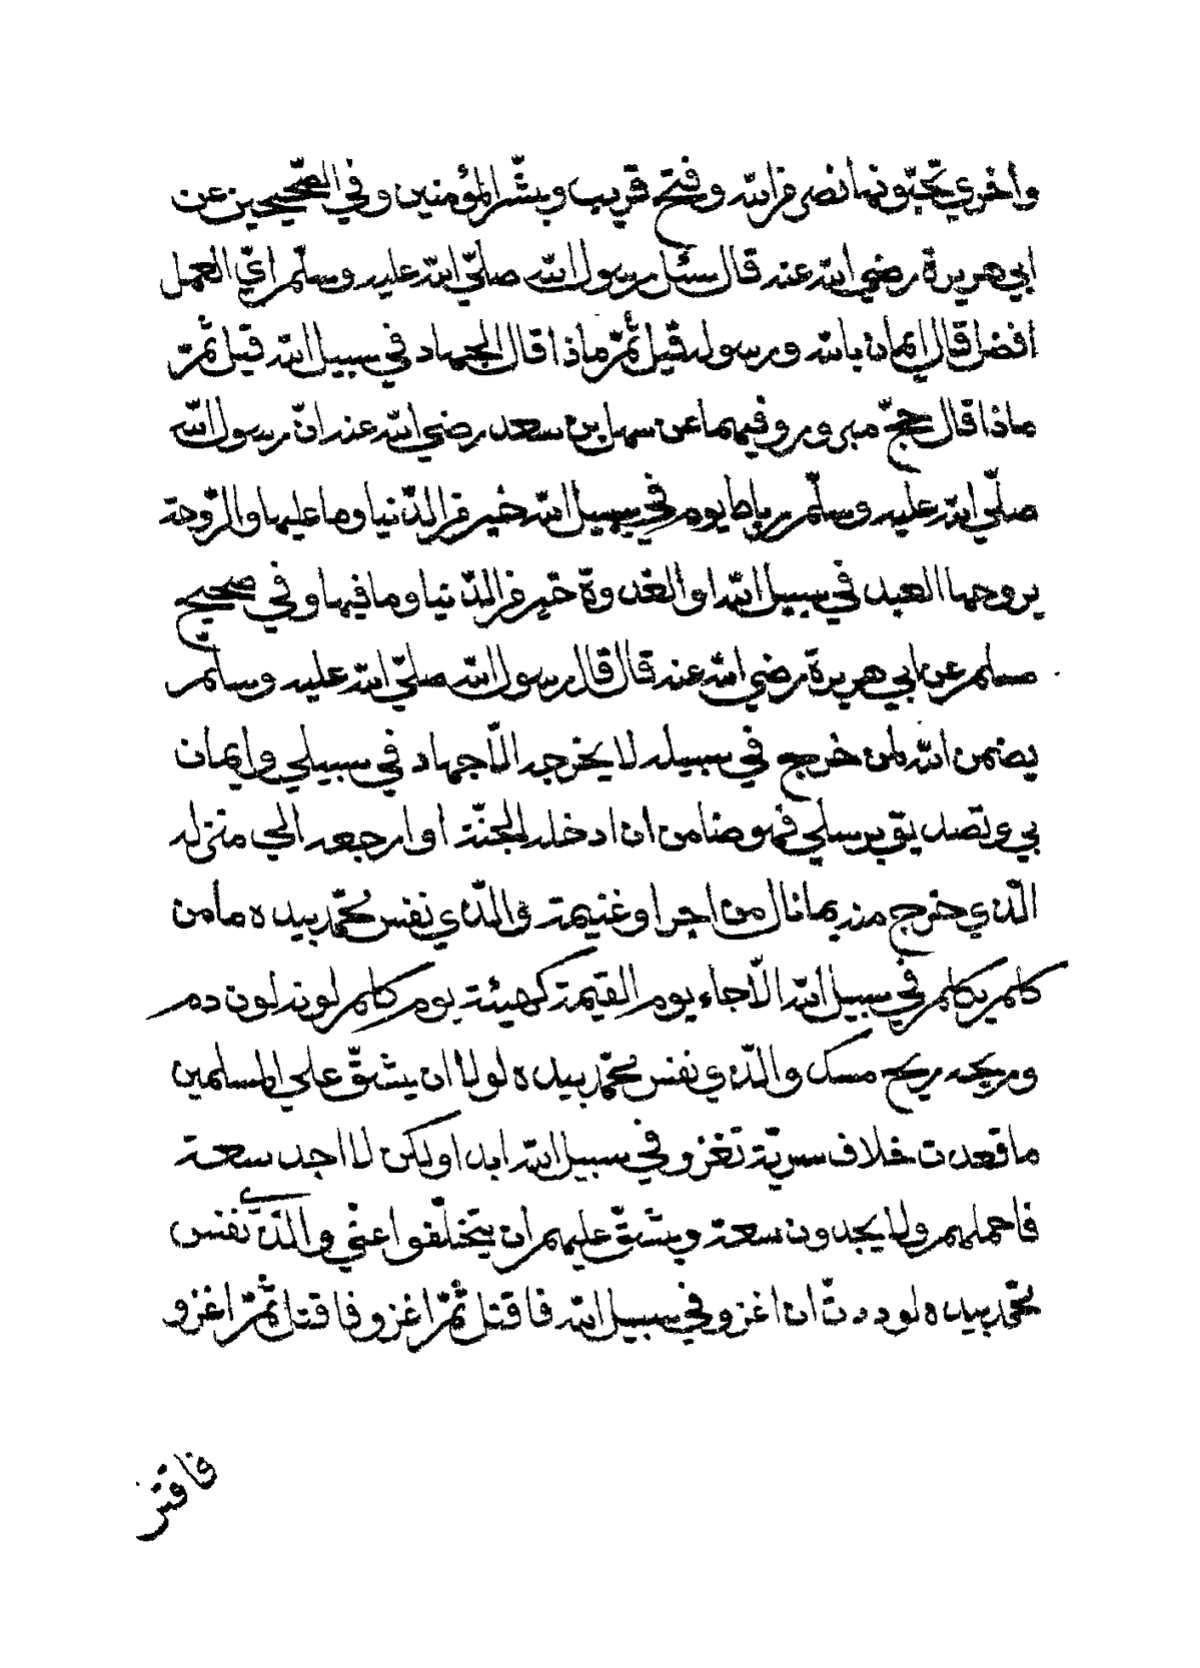 وأخري تحبّونها نصر من الله وفتح قريب وبشّر المؤمنين وفي الصّحيحين عن
ابي هريرة رضي الله عنه قال سئل رسول الله صلّي الله عليه وسلّم ايّ العمل
افضل قال ايمان بالله ورسوله قيل ثمّ ماذا قال الجهاد في سبيل الله قيل ثمّ
ماذا قال حجّ مبرور وفيهما عن سهل بن سعد رضي الله عنه انّ رسول الله
صلّي الله عليه وسلّم رباط يوم في سبيل الله خير من الدّنيا وما عليها والرّوحة
يروحها العبد في سبيل الله او الغدوة خير من الدّنيا وما فيها وفي صحيح
مسلم عن ابي هريرة رضي الله عنه قال قال رسول الله صلّي الله عليه وسلّم
يضمن الله لمن خرج في سبيله لا يخرجه الّا جهاد في سبيلي وايمان
بي وتصديق برسلي فهو ضامن ان ادخله الجنّة او ارجعه الي منزله
الّذي خرج منه بما نال من اجر او غنيمة والّذي نفس محمّد بيده ما من
كلم يكلم في سبيل الله الّا جاء يوم القيمة كهيئة يوم كلم لونه لون دم
وريحه ريح مسك والّذي نفس محمّد بيده لولا ان يشقّ علي المسلمين
ما قعدت خلاف سريّة تغزو في سبيل الله ابدا ولكن لا اجد سعة
فاحملهم ولا يجدون سعة ويشقّ عليهم ان يتخلّفوا عنّي والّذي نفس
محمّد بيده لوددتّ ان اغزو في سبيل الله فاقتل ثمّ اغزو فاقتل ثمّ اغزو
فاقتل